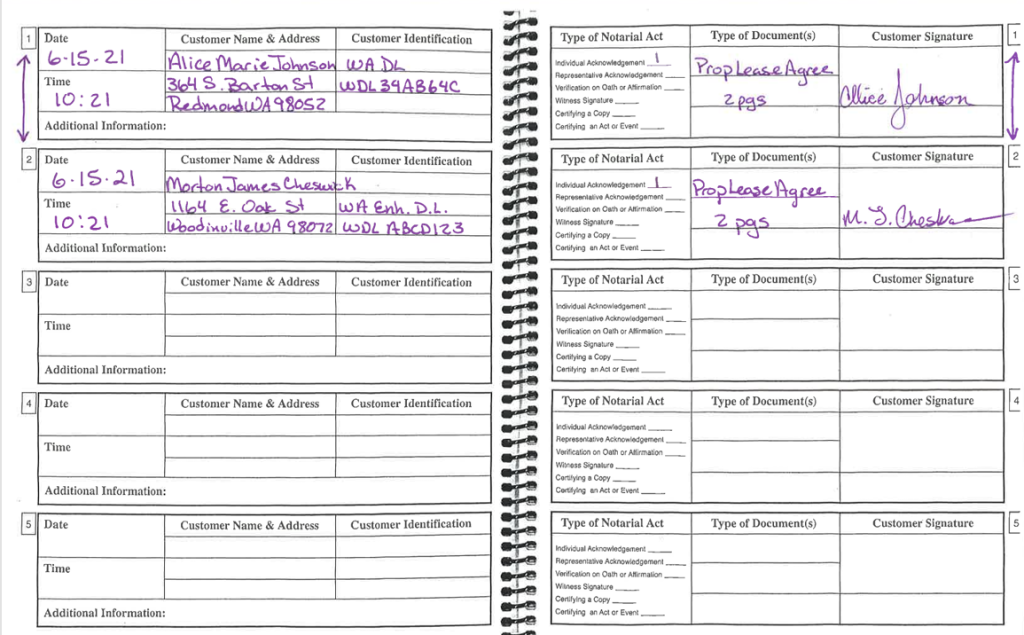 1 Date Customer Name & Address Customer Identification
6-15-21 Alice Marie Johnson WA DL
Time 364 S. Barton St WDL39AB64C
10:21 Redmond WA 98052
Additional Information:
2 Date Customer Name & Address Customer Identification
6-15-21 Morton James Cheswick
Time 1164 E. Oak St WA Enh. D.L.
10:21 Woodinville WA 98072 WDL ABCD123
Additional Information:
3 Date Customer Name & Address Customer Identification
Time
Additional Information:
4 Date Customer Name & Address Customer Identification
Time
Additional Information:
5 Date Customer Name & Address Customer Identification
Time
Additional Information:
Type of Notarial Act Type of Document(s) Customer Signature 1
Individual Acknowledgement 1 Prop Lease Agree
Representative Acknowledgement
Verification on Oath or Affirmation 2 pgs Alice Johnson
Witness Signature
Certifying a Copy
Certifying an Act or Event
Type of Notarial Act Type of Document(s) Customer Signature 2
Individual Acknowledgement 1 Prop Lease Agree
Representative Acknowledgement
Verification on Oath or Affirmation
Witness Signature 2 pgs M. J. Cheswick
Certifying a Copy
Certifying an Act or Event
Type of Notarial Act Type of Document(s) Customer Signature 3
Individual Acknowledgement
Representative Acknowledgement
Verification on Oath or Affirmation
Witness Signature
Certifying a Copy
Certifying an Act or Event
Type of Notarial Act Type of Document(s) Customer Signature 4
Individual Acknowledgement
Representative Acknowledgement
Verification on Oath or Affirmation
Witness Signature
Certifying a Copy
Certifying an Act or Event
Type of Notarial Act Type of Document(s) Customer Signature 5
Individual Acknowledgement
Representative Acknowledgement
Verification on Oath or Affirmation
Witness Signature
Certifying a Copy
Certifying an Act or Event